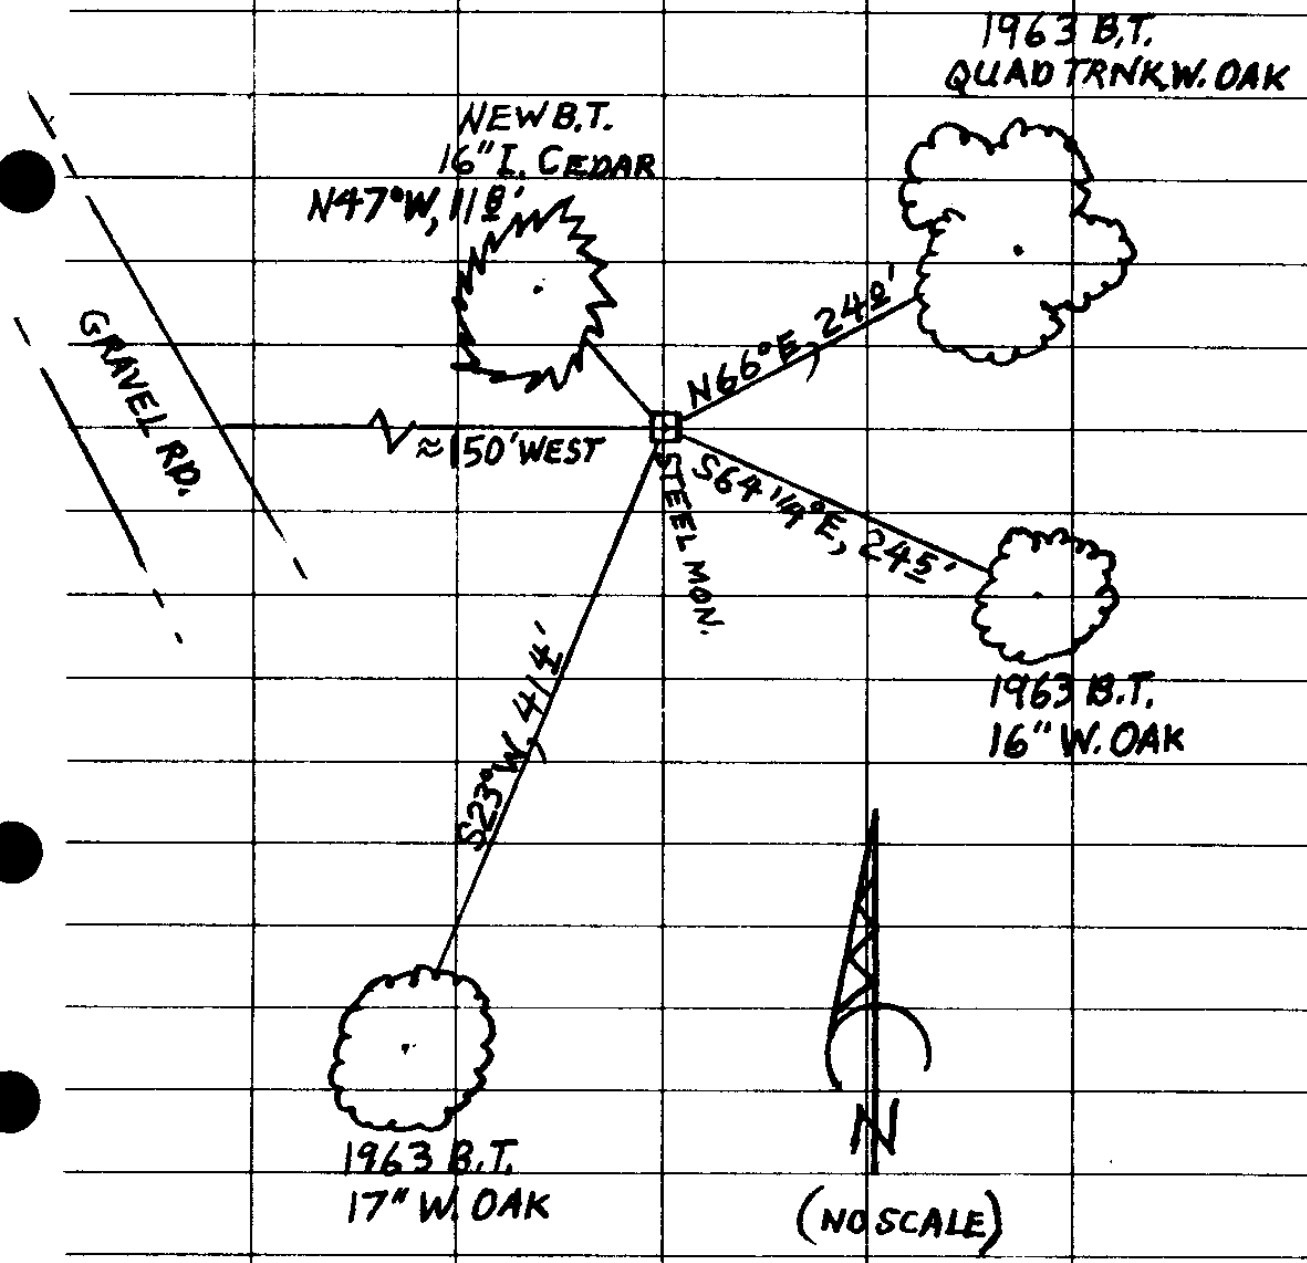 1963 B.T.
QUAD TRNK W. OAK
NEW B.T.
16" I. CEDAR
N47°W, 118'
N66°E, 240'
GRAVEL RD.
≈150' WEST
STEEL MON.
S64 1/4°E, 245'
1963 B.T.
16" W. OAK
S23°W, 414'
1963 B.T.
17" W. OAK
N
(NO SCALE)